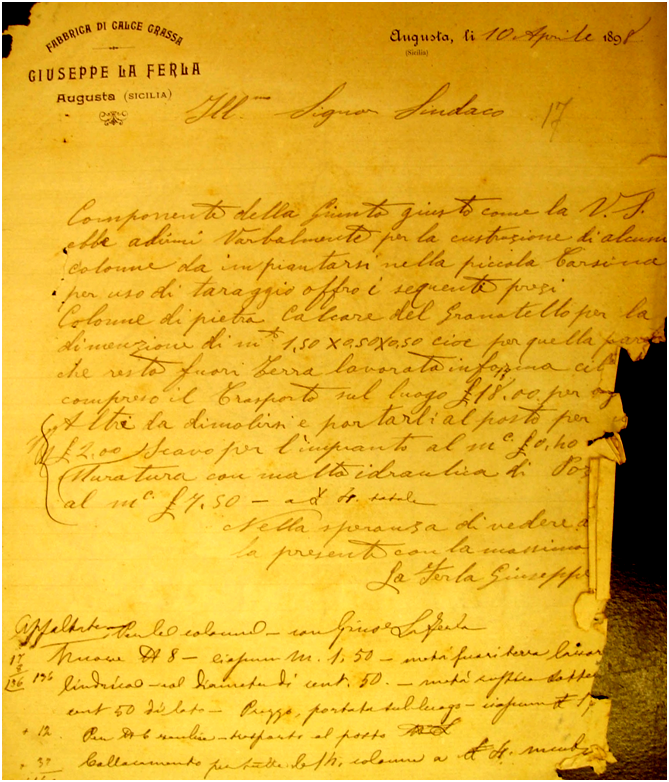 FABBRICA DI CALCE GRASSA
GIUSEPPE LA FERLA
Augusta (SICILIA)
Augusta, li 10 Aprile 1898
(Sicilia)
Ill.mo Signor Sindaco
17
Componente della Giunta giusto come la V. S.
ebbe a dirmi Varbalmente per la custruzione di alcune
colonne da impiantarsi nella piccola Darsina
per uso di taraggio offro i sequente prezi
Colonne di pietra Calcare del Granatello per la
dimenzione di mt 1,50 x 0,50 x 0,50 cioè per quella parte
che resta fuori terra lavorata in forma cil
compreso il Trasporto sul luogo £ 18.00. per og
Altri da dimolirsi e portarli al posto per
£ 2.00 Scavo per l'impianto al mc. £ 0,40
Muratura con malta idraulica di Poz
al mc £ 7.50 —
Nella speranza di vedere a
la presente con la massima
La Ferla Giuseppe
Appaltato per le colonne — con Giuse La Ferla
17
8
136
136
Nuove N 8 — ciascun m. 1.50 — metà fuori terra
lindrica — al diametro di cent. 50. — metà
cent 50 di lato — Prezzo, portata sul luogo — ciascun £ 17
+ 12
Per N 6 vecchie — trasporto al posto
Collocamento per tutte le 14 colonne a